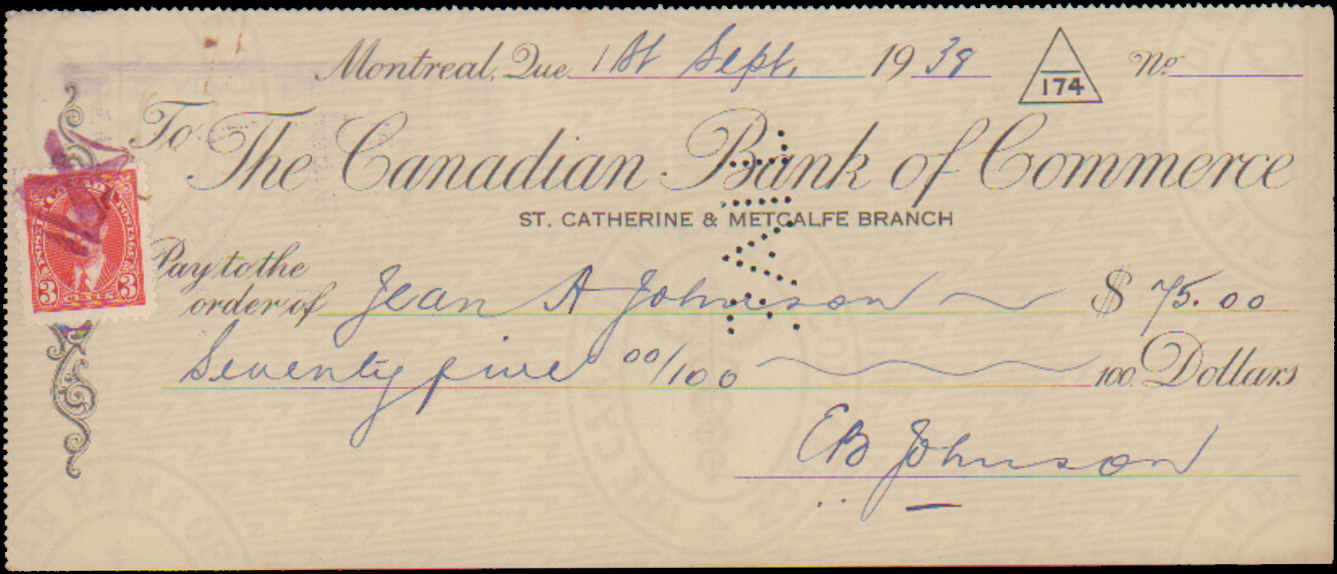 Montreal, Que. 1st Sept. 1938 174 No.
To The Canadian Bank of Commerce
ST. CATHERINE & METCALFE BRANCH
Pay to the
order of Jean A Johnson $ 75.00
Seventy five 00/100 100 Dollars
EB Johnson
3 CENTS 3